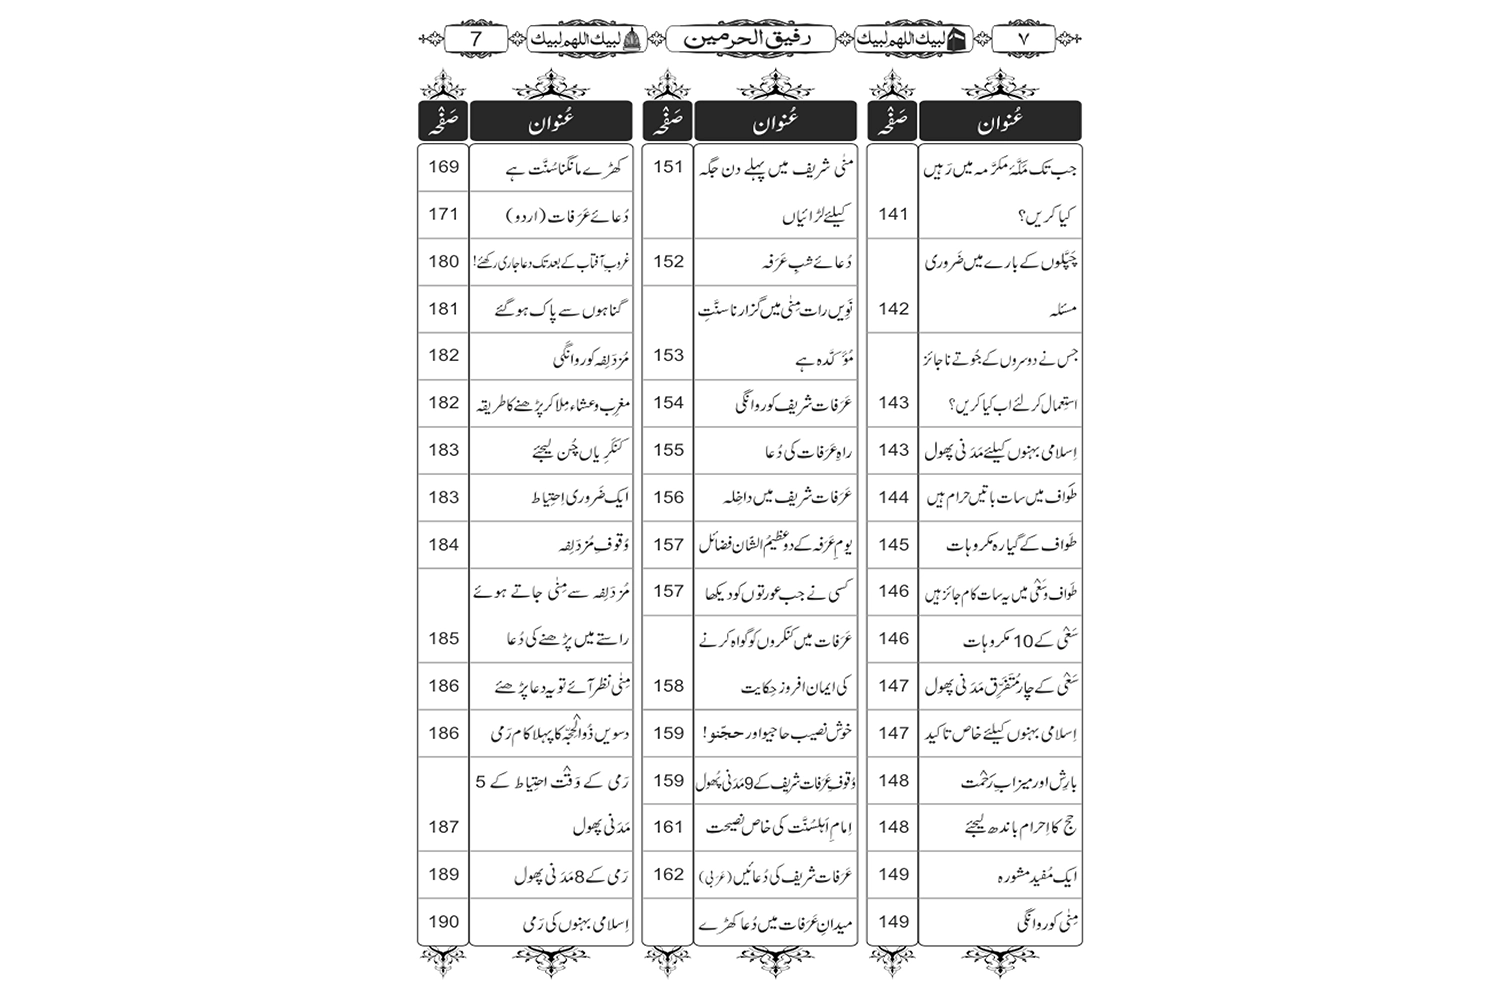 ٧ لبیك اللهم لبیك رفیق الحرمین لبیك اللهم لبیك 7
عُنوان صَفْحَہ
جب تک مَکَّۂ مکرَّمہ میں رَہیں
کیا کریں؟ 141
چَپَّلوں کے بارے میں ضَروری
مسئلہ 142
جس نے دوسروں کے جُوتے ناجائز
استِعمال کر لئے اب کیا کریں؟ 143
اِسلامی بہنوں کیلئے مَدَنی پھول 143
طَواف میں سات باتیں حرام ہیں 144
طَواف کے گیارہ مکروہات 145
طَواف و سَعْی میں یہ سات کام جائز ہیں 146
سَعْی کے 10 مکروہات 146
سَعْی کے چار مُتَفَرِّق مَدَنی پھول 147
اِسلامی بہنوں کیلئے خاص تاکید 147
بارِش اور میزابِ رَحْمت 148
حج کا اِحرام باندھ لیجئے 148
ایک مُفید مشورہ 149
مِنٰی کو روانگی 149
عُنوان صَفْحَہ
مِنٰی شریف میں پہلے دن جگہ 151
کیلئے لڑائیاں
دُعائے شبِ عَرَفہ 152
نَوِیں رات مِنٰی میں گزارنا سنَّتِ
مُؤَکَّدہ ہے 153
عَرَفات شریف کو روانگی 154
راہِ عَرَفات کی دُعا 155
عَرَفات شریف میں داخِلہ 156
یومِ عَرَفہ کے دو عظیمُ الشّان فضائل 157
کسی نے جب عورتوں کو دیکھا 157
عَرَفات میں کنکروں کو گواہ کرنے
کی ایمان افروز حِکایت 158
خوش نصیب حاجیو اور حجّنو! 159
وُقوفِ عَرَفات شریف کے 9 مَدَنی پُھول 159
اِمامِ اَہلسُنَّت کی خاص نصیحت 161
عَرَفات شریف کی دُعائیں (عَرَبی) 162
میدانِ عَرَفات میں دُعا کھڑے
عُنوان صَفْحَہ
کھڑے مانگنا سُنَّت ہے 169
دُعائے عَرَفات (اردو) 171
غروبِ آفتاب کے بعد تک دعا جاری رکھئے! 180
گناہوں سے پاک ہو گئے 181
مُزدَلِفہ کو روانگی 182
مغرِب و عشاء مِلا کر پڑھنے کا طریقہ 182
کنکَرِیاں چُن لیجئے 183
ایک ضَروری اِحتِیاط 183
وُقوفِ مُزدَلِفہ 184
مُزدَلِفہ سے مِنٰی جاتے ہوئے
راستے میں پڑھنے کی دُعا 185
مِنٰی نظر آئے تو یہ دعا پڑھئے 186
دسویں ذُوالْحِجّہ کا پہلا کام رَمی 186
رَمی کے وَقْت احتِیاط کے 5
مَدَنی پھول 187
رَمی کے 8 مَدَنی پھول 189
اِسلامی بہنوں کی رَمی 190